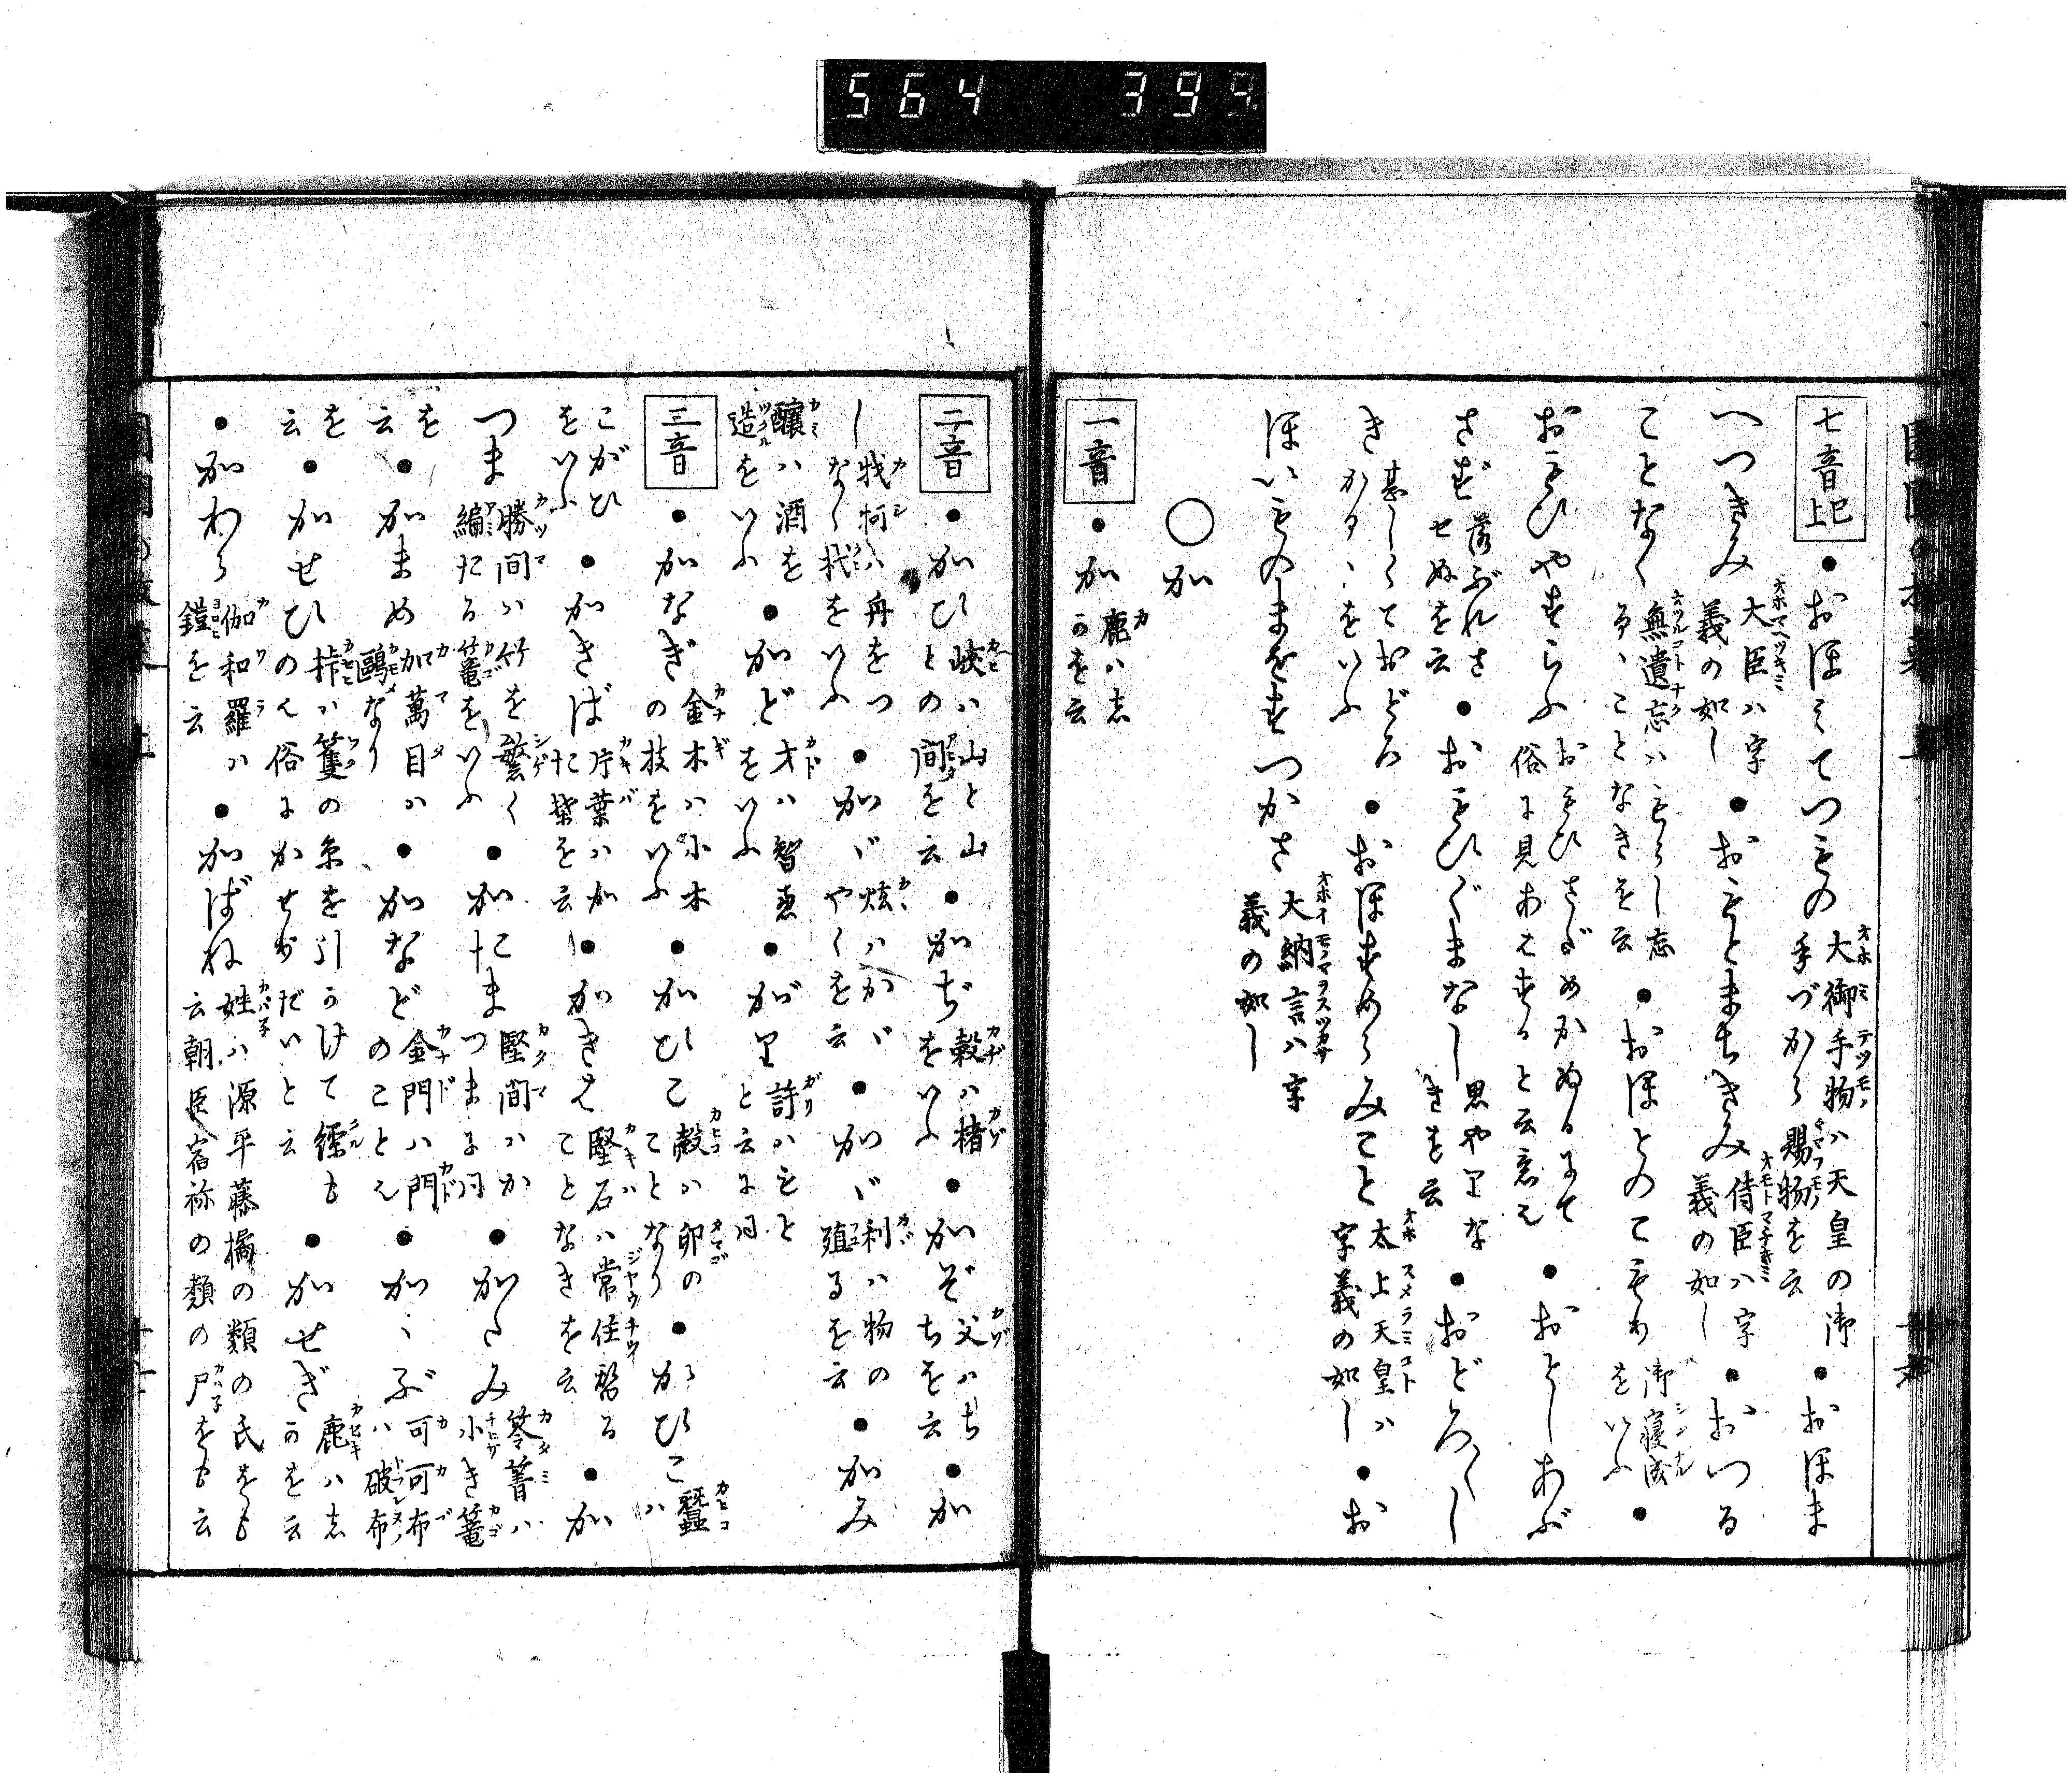 564 399
七音已上 ●おほみてつもの 大御手物ハ天皇の御手づから賜物を云 ●おほま
へつきみ 大臣ハ字義の如し ●おもとまちきみ 侍臣ハ字義の如し ●おつる
ことなく 無遺忘ハもらし忘るゝことなきを云 ●おほとのごもり 御寝成をいふ ●
おもひやすらふ おもひさだめかぬるにて俗に見あはすると云意也 ●おとしあぶ
さず 落ぶれさせぬを云 ●おもひぐまなし 思やりなきを云 ●おどろ〳〵し
き 甚しくておどろかるゝをいふ ●おほすめらみこと 太上天皇ハ字義の如し ●お
ほいものまをすつかさ 大納言ハ字義の如し
○か
一音 ●か 鹿ハ志かを云
二音 ●かひ 峡ハ山と山との間を云 ●かぢ 穀ハ楮をいふ ●かぞ 父ハちちを云 ●か
し 牁ハ舟をつなく杙をいふ ●かゞ 炫ハかゞやくを云 ●かゞ 利ハ物の殖るを云 ●かみ
醸ハ酒を造をいふ ●かど 才ハ智恵をいふ ●がり 許ハもとと云に同
三音 ●かなぎ 金木ハ小木の枝をいふ ●かひこ 殻ハ卵のことなり ●かひこ 蠶ハ
こがひをいふ ●かきば 片葉ハかた葉を云 ●かきは 堅石ハ常住替ることなきを云 ●か
つま 勝間ハ竹を繁く編たる篭をいふ ●かたま 堅間ハかつまに同 ●かたみ 笭箐ハ小き篭
を云 ●かまめ 加萬目ハ鷗なり ●かなど 金門ハ門のこと也 ●かゝふ 可可布ハ破布
を云 ●かせひ 桛ハ篗の糸を引うけて繧ものえ俗にかせぎだいと云 ●かせぎ 鹿ハ志かを云
●かわら 伽和羅ハ鎧を云 ●かばね 姓ハ源平藤橘の類の氏をも云朝臣宿祢の類の尸をも云